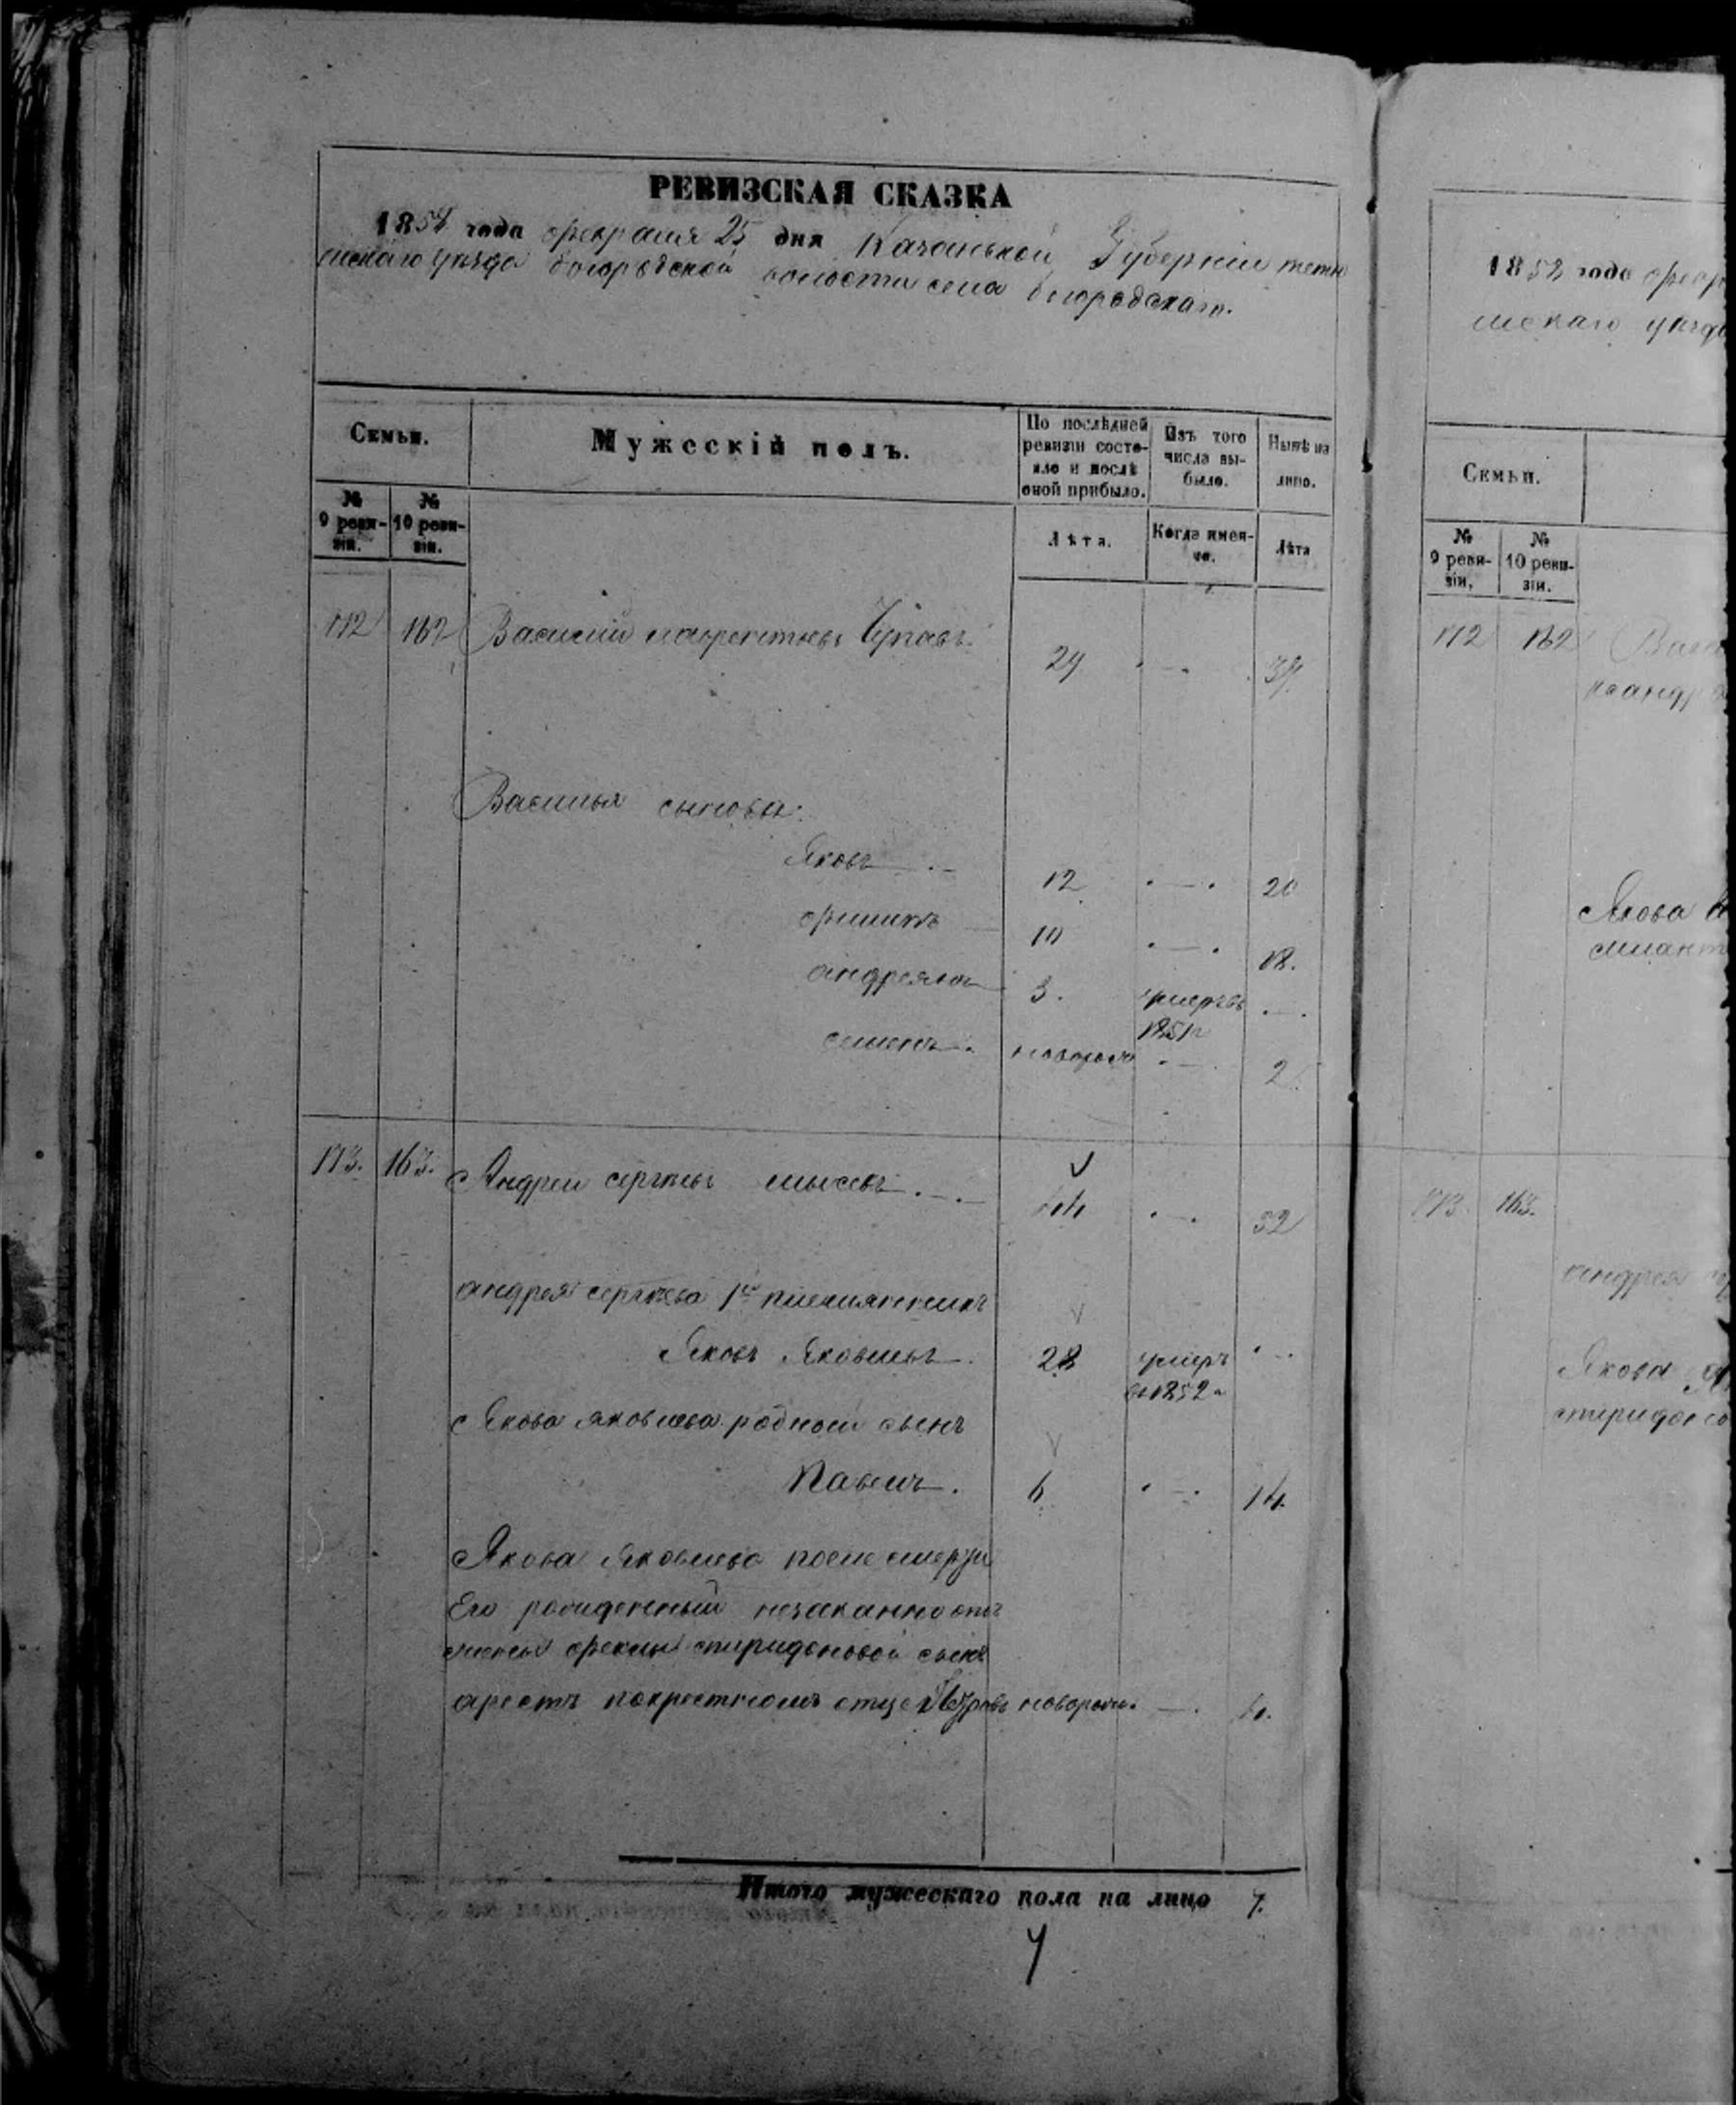 РЕВИЗСКАЯ СКАЗКА
1858 года февраля 25 дня Казанской Губернии тетю
шскаго уѣзда богородской волости села богородскаго.
Семьи.
Мужескій полъ.
По послѣдней ревизіи состояло и послѣ оной прибыло.
Изъ того числа выбыло.
Нынѣ на лицо.
№ 9 ревизіи.
№ 10 ревизіи.
Лѣта.
Когда именно.
Лѣта
172 162 Василий лаврентьевъ 29 . — . 37
Василья сыновья:
Яковъ 12 . — . 20
филипъ 10 . — . 18.
андреянъ 3. умеръ въ 1851 г . — .
семенъ . новорож . — . 2.
173. 163. Андреи сергѣевъ . — . 44 . — . 52
андрея сергѣева 1й племянникъ
Яковъ Яковлевъ 28 умеръ въ 1852 г . — .
Якова яковлева родной сынъ
Павелъ. 6 . — . 14.
Якова Яковлева после смерти
Его рожденный незаканно отъ
жены феклы спиридоновой сынъ
арестъ покрестному отце новорожд. — . 4.
Итого мужескаго пола на лицо 7.
7
1858 года февр
шскаго уѣзда
Семьи.
№ 9 ревизіи.
№ 10 ревизіи.
172 162
Якова
173 163.
андрея
Якова
спиридоно